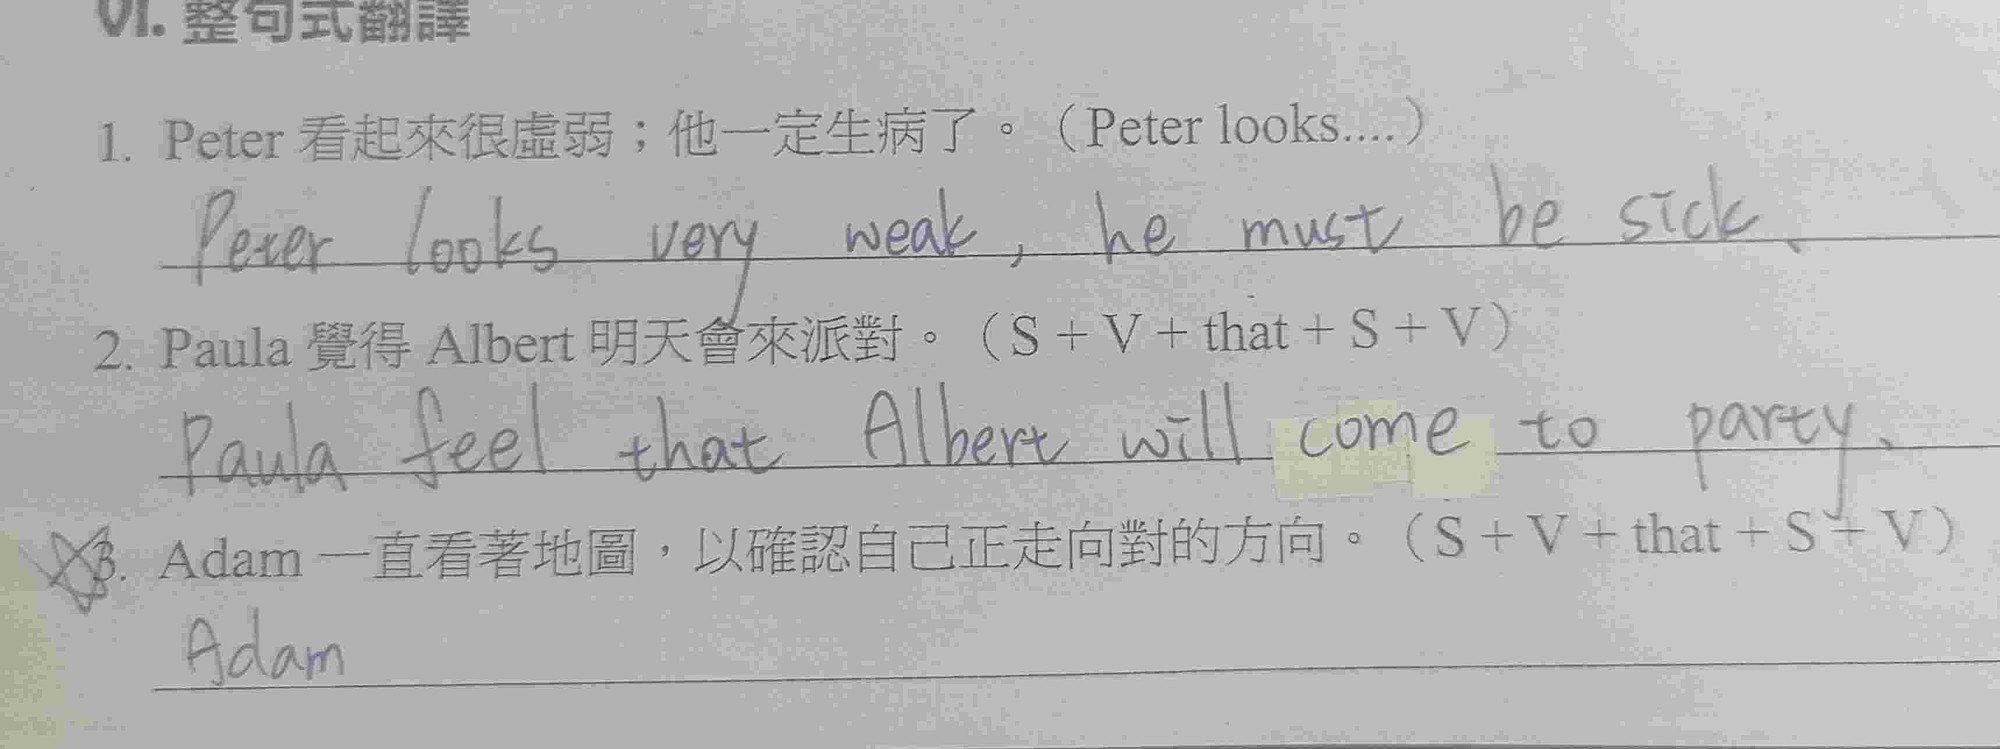 VI. 整句式翻譯
1. Peter 看起來很虛弱；他一定生病了。（Peter looks....）
Peter looks very weak, he must be sick.
2. Paula 覺得 Albert 明天會來派對。（S + V + that + S + V）
Paula feel that Albert will come to party.
3. Adam 一直看著地圖，以確認自己正走向對的方向。（S + V + that + S + V）
Adam